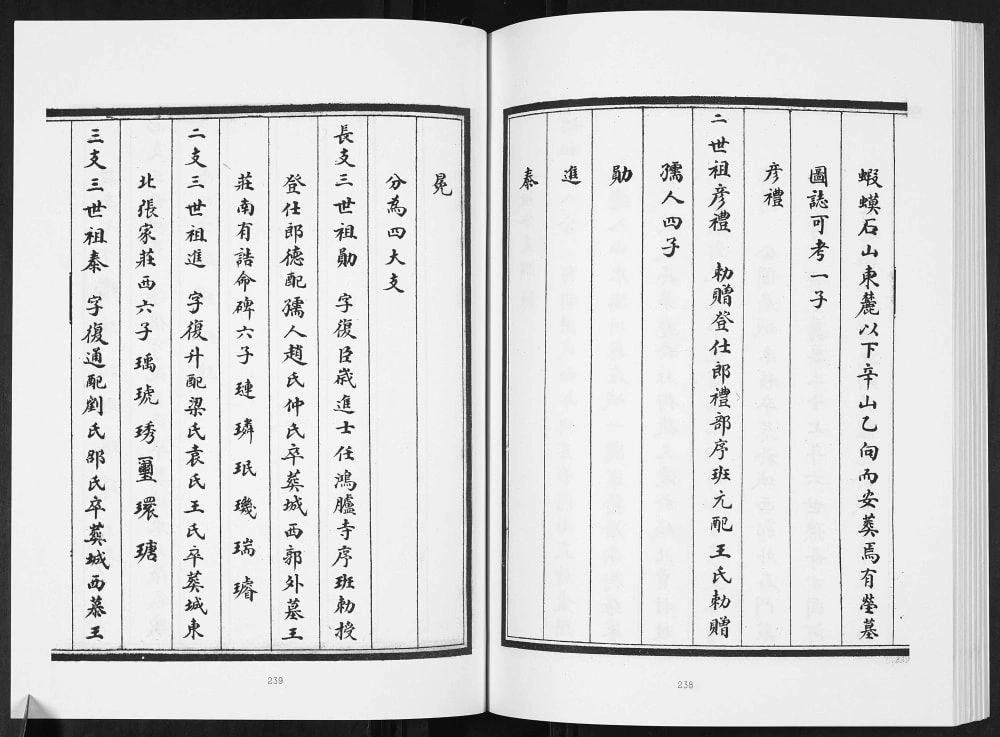 蝦蟆石山東麓以下辛山乙向而安葬焉有塋墓
圖誌可考一子
彥禮
二世祖彥禮 勅贈登仕郎禮部序班元配王氏勅贈
孺人四子
勛
進
泰
238
冕
分為四大支
長支三世祖勛 字復臣歲進士任鴻臚寺序班勅授
登仕郎德配孺人趙氏仲氏卒葬城西郭外墓王
莊南有誥命碑六子 璉 璘 珉 璣 瑞 璿
二支三世祖進 字復升配梁氏袁氏王氏卒葬城東
北張家莊西六子 瑀 琥 琇 璽 環 瑭
三支三世祖泰 字復通配劉氏邵氏卒葬城西慕王
239